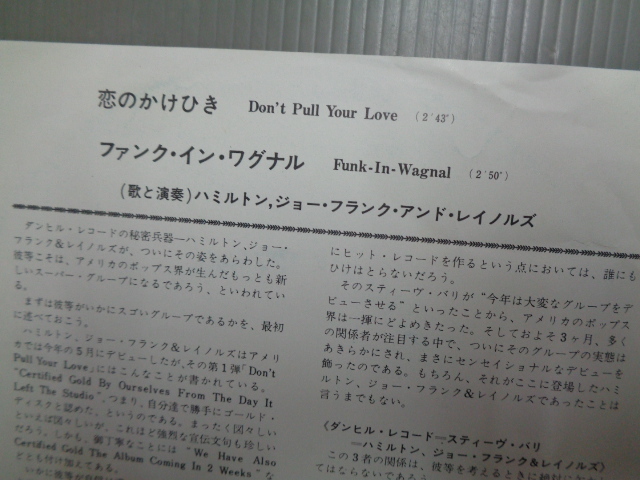 恋のかけひき Don't Pull Your Love (2'43")
ファンク・イン・ワグナル Funk-In-Wagnal (2'50")
(歌と演奏)ハミルトン,ジョー・フランク・アンド・レイノルズ
ダンヒル・レコードの秘密兵器―ハミルトン、ジョー・
フランク&レイノルズが、ついにその姿をあらわした。
彼等こそは、アメリカのポップス界が生んだもっとも新
しいスーパー・グループになるであろう、といわれてい
る。
まずは彼等がいかにスゴいグループであるかを、最初
に述べておこう。
ハミルトン、ジョー・フランク&レイノルズはアメリ
カでは今年の5月にデビューしたが、その第1弾「Don't
Pull Your Love」にはこんなことが書かれている。
"Certified Gold By Ourselves From The Day It
Left The Studio" つまり、自分達で勝手にゴールド・
ディスクと認めた、というのである。まったく図々しい
といえば図々しいが、これほど強烈な宣伝文句も珍しい
だろう。しかも、御丁寧なことには "We Have Also
Certified Gold The Album Coming In 2 Weeks" な
ども付け加えてある。
にヒット・レコードを作るという点においては、誰にも
ひけはとらないだろう。
そのスティーヴ・バリが "今年は大変なグループをデ
ビューさせる" といったことから、アメリカのポップス
界は一揮にどよめきたった。そしておよそ3ヶ月、多く
の関係者が注目する中で、ついにそのグループの実態は
あきらかにされ、まさにセンセイショナルなデビューを
飾ったのである。もちろん、それがここに登場したハミ
ルトン、ジョー・フランク&レイノルズであったことは
言うまでもない。
《ダンヒル・レコード―スティーヴ・バリ
―ハミルトン、ジョー・フランク&レイノルズ》
この3者の関係は、彼等を考えるときに絶対に
てはならないであろう